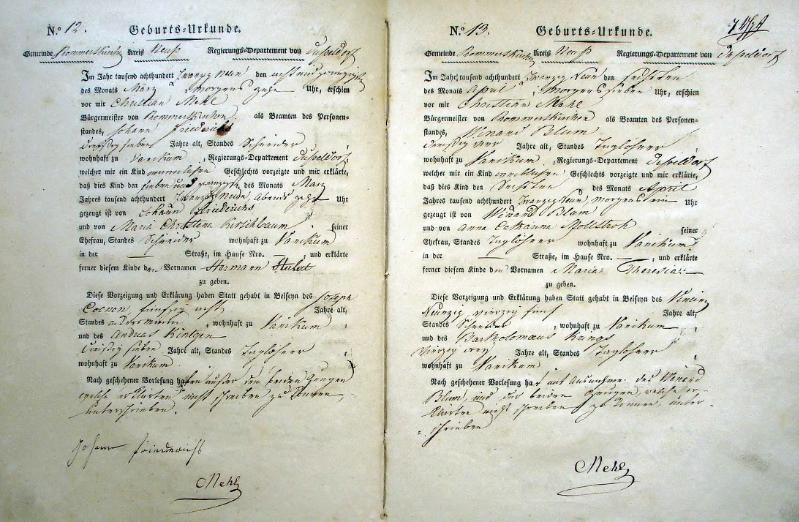 No. 12. Geburts-Urkunde.
Gemeinde Rommerskirchen Kreis Neuß Regierungs-Departement von Düsseldorf
Im Jahr tausend achthundert zwanzig neun den acht und zwanzigsten
des Monats März morgens zehn Uhr, erschien
vor mir Christian Mehl
Bürgermeister von Rommerskirchen als Beamten des Personen-
standes, Johann Friederichs
dreißig sieben Jahre alt, Standes Schneider
wohnhaft zu Vanikum, Regierungs-Departement Düsseldorf
welcher mir ein Kind männlichen Geschlechts vorzeigte und mir erklärte,
daß dies Kind den sieben und zwanzigsten des Monats März
Jahres tausend achthundert zwanzig neun Abends Uhr
gezeugt ist von Johann Friederichs
und von Maria Christina Kirschbaum seiner
Ehefrau, Standes Schneider wohnhaft zu Vanikum
in der Straße, im Hause Nro. und erklärte
ferner diesem Kinde den Vornamen Hermann Hubert
zu geben.
Diese Vorzeigung und Erklärung haben Statt gehabt in Beiseyn des Joseph
Coenen fünfzig Jahre alt,
Standes Ackersmann, wohnhaft zu Vanikum,
und des Andreas
dreißig sieben Jahre alt, Standes Taglöhner,
wohnhaft zu Vanikum
Nach geschehener Vorlesung haben außer den beiden Zeugen
welche erklärten nicht schreiben zu können,
unterschrieben.
Johann Friederichs
Mehl
No. 13. Geburts-Urkunde.
Gemeinde Rommerskirchen Kreis Neuß Regierungs-Departement von Düsseldorf
Im Jahr tausend achthundert zwanzig neun den sechsten
des Monats April morgens sieben Uhr, erschien
vor mir Christian Mehl
Bürgermeister von Rommerskirchen als Beamten des Personen-
standes, Winand Blum
dreißig vier Jahre alt, Standes Taglöhner
wohnhaft zu Vanikum, Regierungs-Departement Düsseldorf
welcher mir ein Kind weiblichen Geschlechts vorzeigte und mir erklärte,
daß dies Kind den sechsten des Monats April
Jahres tausend achthundert zwanzig neun morgens ein Uhr
gezeugt ist von Winand Blum
und von Anna Catharina seiner
Ehefrau, Standes Taglöhner wohnhaft zu Vanikum
in der Straße, im Hause Nro. und erklärte
ferner diesem Kinde den Vornamen Maria Theresia
zu geben.
Diese Vorzeigung und Erklärung haben Statt gehabt in Beiseyn des
vierzig fünf Jahre alt,
Standes, wohnhaft zu Vanikum,
und des Bartholomäus
vierzig Jahre alt, Standes Taglöhner,
wohnhaft zu Vanikum
Nach geschehener Vorlesung hat mit Ausnahme des Winand
Blum, und der beiden Zeugen, welche er-
klärten nicht schreiben zu können, unter-
schrieben
Mehl